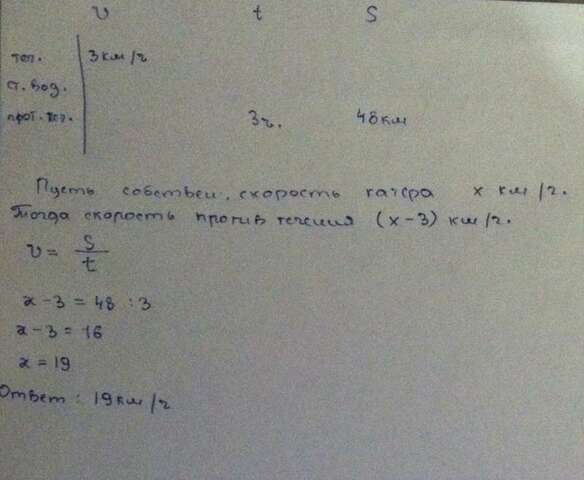 v t S
теч. 3 км/ч
с. вод.
прот. теч. 3ч. 48км
Пусть собствен. скорость катера x км/ч.
Тогда скорость против течения (x-3) км/ч.
v = S/t
x - 3 = 48 : 3
x - 3 = 16
x = 19
Ответ: 19км/ч